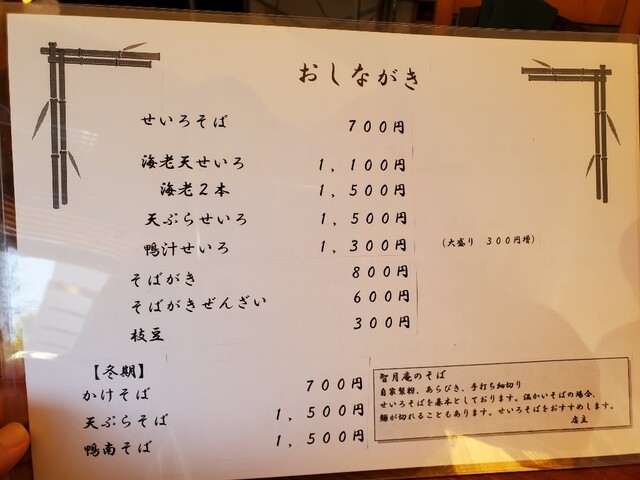 おしながき
せいろそば 700円
海老天せいろ 1,100円
海老2本 1,500円
天ぷらせいろ 1,500円
鴨汁せいろ 1,300円 (大盛り 300円増)
そばがき 800円
そばがきぜんざい 600円
枝豆 300円
【冬期】
かけそば 700円
天ぷらそば 1,500円
鴨南そば 1,500円
智月庵のそば
自家製粉、あらびき、手打ち細切り
せいろそばを基本としております。温かいそばの場合、
麺が切れることもあります。せいろそばをおすすめします。
店主